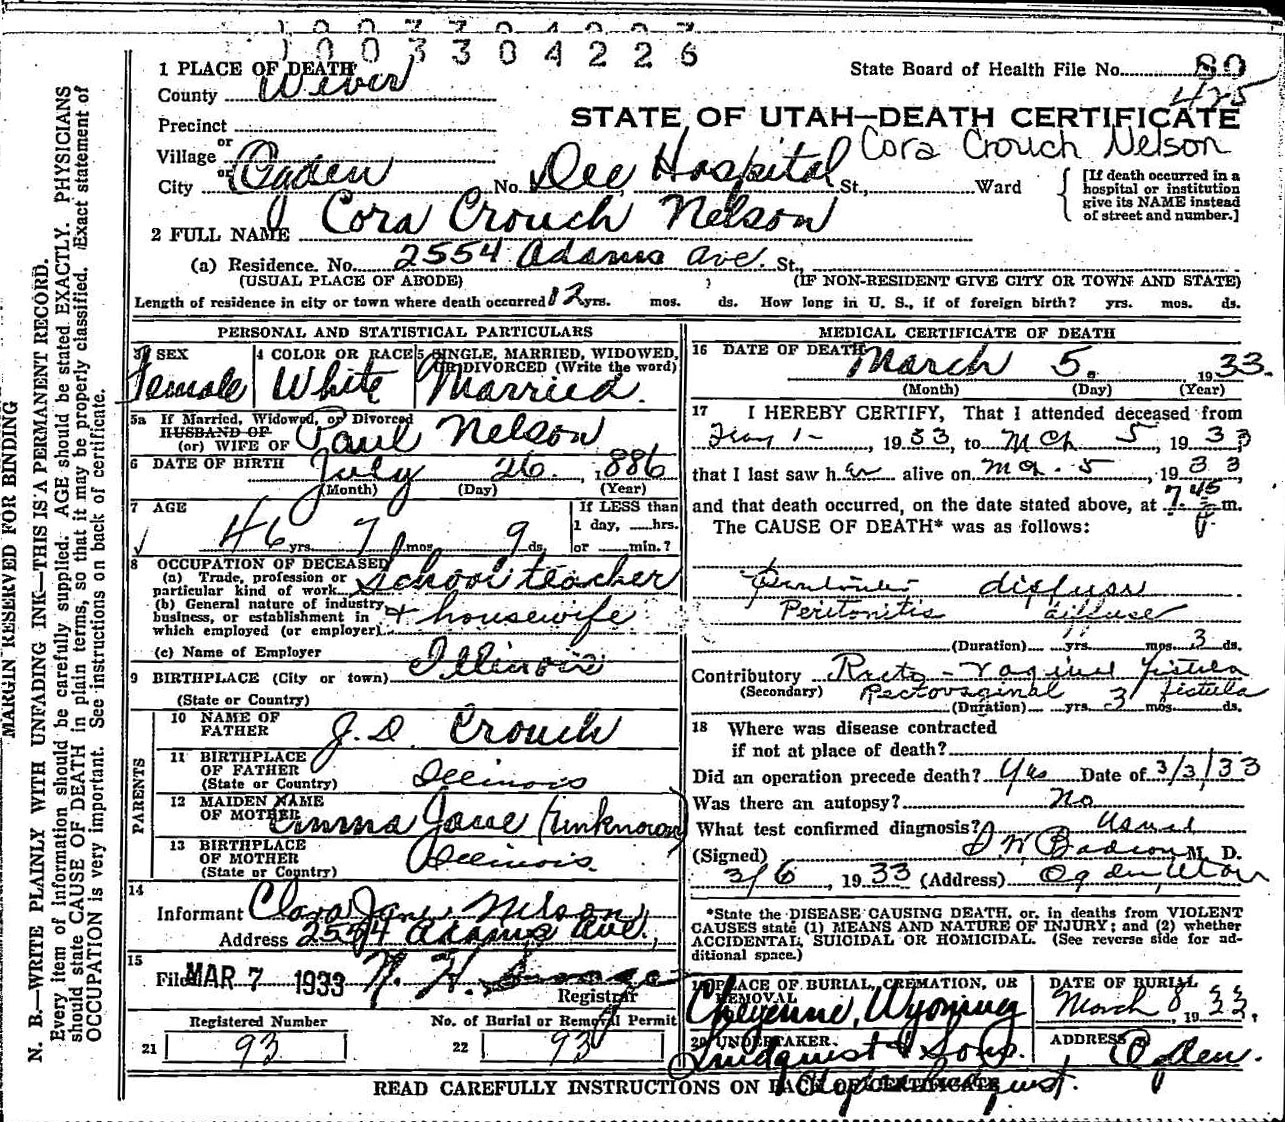 1003304226
1 PLACE OF DEATH
State Board of Health File No. 80
County Weber
425
STATE OF UTAH—DEATH CERTIFICATE
Precinct
or
Village
Cora Crouch Nelson
or
City Ogden No. Dee Hospital St., Ward
[If death occurred in a
hospital or institution
give its NAME instead
of street and number.]
2 FULL NAME Cora Crouch Nelson
(a) Residence. No. 2554 Adams Ave. St.,
(USUAL PLACE OF ABODE) (IF NON-RESIDENT GIVE CITY OR TOWN AND STATE)
Length of residence in city or town where death occurred 12 yrs. mos. ds. How long in U. S., if of foreign birth? yrs. mos. ds.
PERSONAL AND STATISTICAL PARTICULARS
3 SEX
Female
4 COLOR OR RACE
White
5 SINGLE, MARRIED, WIDOWED,
OR DIVORCED (Write the word)
Married.
5a If Married, Widowed, or Divorced
HUSBAND OF
(or) WIFE OF Paul Nelson
6 DATE OF BIRTH July 26. 1886
(Month) (Day) (Year)
7 AGE
46 yrs. 7 mos. 9 ds.
If LESS than
1 day, ....hrs.
or ....min.?
8 OCCUPATION OF DECEASED
(a) Trade, profession or
particular kind of work School teacher
(b) General nature of industry,
business, or establishment in
which employed (or employer) + housewife
(c) Name of Employer
9 BIRTHPLACE (City or town) Illinois
(State or Country)
PARENTS
10 NAME OF
FATHER J. D. Crouch
11 BIRTHPLACE
OF FATHER
(State or Country) Illinois
12 MAIDEN NAME
OF MOTHER Emma Jane (Unknown)
13 BIRTHPLACE
OF MOTHER
(State or Country) Illinois.
14
Informant Clara Jane Nelson
Address 2554 Adams Ave.,
15
Filed MAR 7 1933
Registrar
Registered Number
21 93
No. of Burial or Removal Permit
22 93
MEDICAL CERTIFICATE OF DEATH
16 DATE OF DEATH March 5. 1933.
(Month) (Day) (Year)
17 I HEREBY CERTIFY, That I attended deceased from
1-, 1933 to Mch 5, 1933
that I last saw her alive on Mch. 5, 1933
and that death occurred, on the date stated above, at 7 45 p m.
The CAUSE OF DEATH* was as follows:
Peritonitis diffuse
Peritonitis diffuse
(Duration) yrs. mos. 3 ds.
Contributory Recto-vaginal fistula
(Secondary) Rectovaginal fistula
(Duration) yrs. 3 mos. ds.
18 Where was disease contracted
if not at place of death?
Did an operation precede death? Yes Date of 3/3/33
Was there an autopsy? No
What test confirmed diagnosis? Usual
(Signed) M. D.
3/6, 1933 (Address) Ogden, Utah
*State the DISEASE CAUSING DEATH, or, in deaths from VIOLENT
CAUSES state (1) MEANS AND NATURE OF INJURY; and (2) whether
ACCIDENTAL, SUICIDAL OR HOMICIDAL. (See reverse side for ad-
ditional space.)
19 PLACE OF BURIAL, CREMATION, OR
REMOVAL
Cheyenne, Wyoming
DATE OF BURIAL
March 8, 1933.
20 UNDERTAKER
Lindquist & Sons.
ADDRESS
Ogden.
READ CAREFULLY INSTRUCTIONS ON BACK OF CERTIFICATE
MARGIN RESERVED FOR BINDING
N. B.—WRITE PLAINLY WITH UNFADING INK—THIS IS A PERMANENT RECORD.
Every item of information should be carefully supplied. AGE should be stated EXACTLY. PHYSICIANS
should state CAUSE OF DEATH in plain terms, so that it may be properly classified. Exact statement of
OCCUPATION is very important. See instructions on back of certificate.